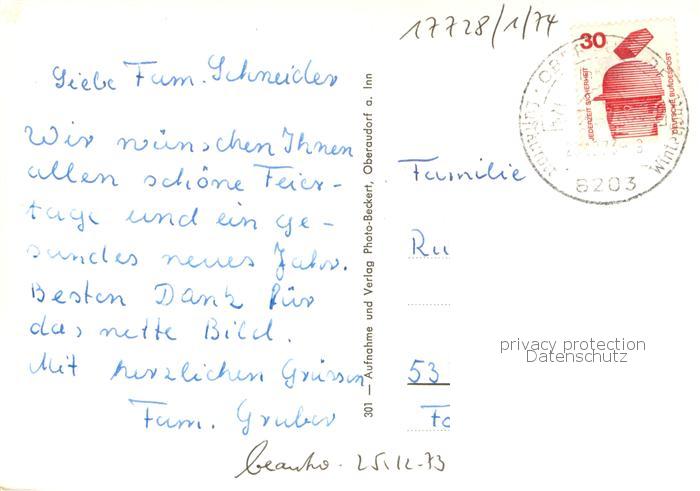 17728/1/74
Liebe Fam. Schneider
Wir wünschen Ihnen
allen schöne Feier-
tage und ein ge-
sundes neues Jahr.
Besten Dank für
das nette Bild.
Mit herzlichen Grüssen
Fam. Gruber
beantw. 25.12.73
301 — Aufnahme und Verlag Photo-Beckert, Oberaudorf a. Inn
30
JEDERZEIT SICHERHEIT
DEUTSCHE BUNDESPOST
8203
Familie
Ru
53
privacy protection
Datenschutz